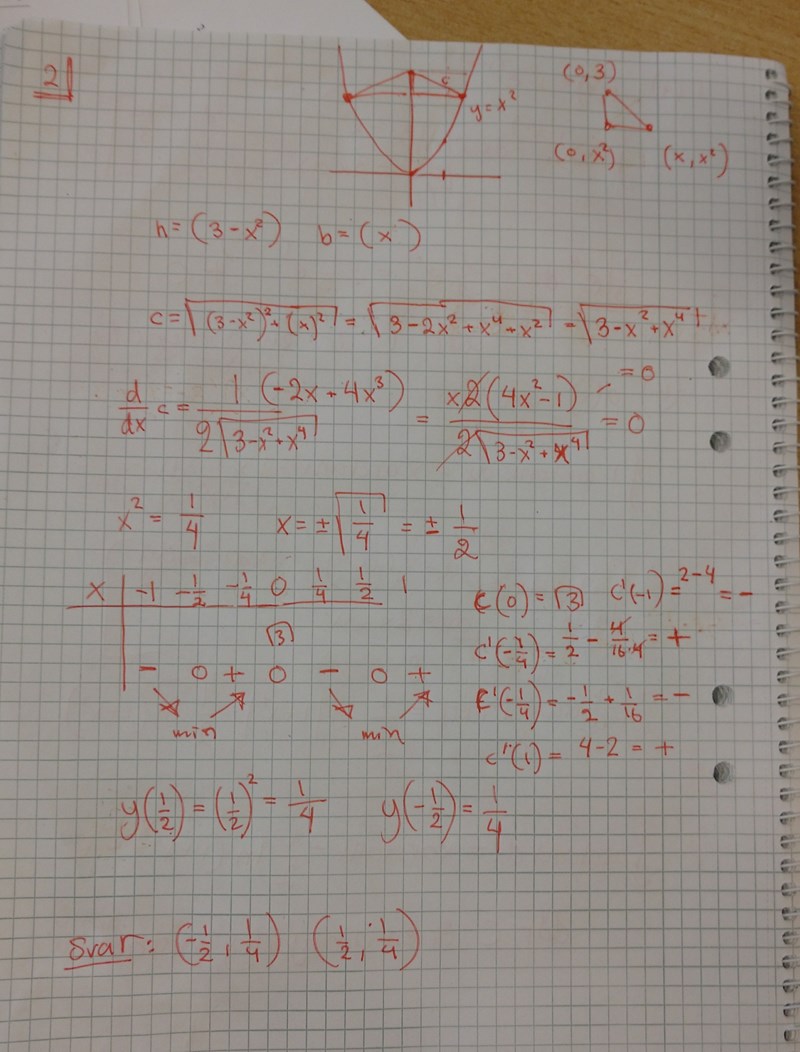 2
c
y = x²
(0,3)
(0, x²) (x, x²)
h = (3 - x²) b = (x)
c = √((3-x²)² + (x)²) = √(3 - 2x² + x⁴ + x²) = √(3 - x² + x⁴)
d/dx c = 1 (-2x + 4x³) / 2√(3-x²+x⁴) = x2(4x²-1) / 2√(3-x²+x⁴) = 0
= 0
x² = 1/4 x = ±√(1/4) = ± 1/2
x | -1 -1/2 -1/4 0 1/4 1/2 1
√3
- 0 + 0 - 0 +
↘ ↗ ↘ ↗
min min
c(0) = √3 c'(-1) = 2-4 = -
c'(-1/4) = 1/2 - 4/16·4 = +
c'(-1/4) = -1/2 + 1/16 = -
c'(1) = 4-2 = +
y(1/2) = (1/2)² = 1/4 y(-1/2) = 1/4
Svar: (-1/2, 1/4) (1/2, 1/4)